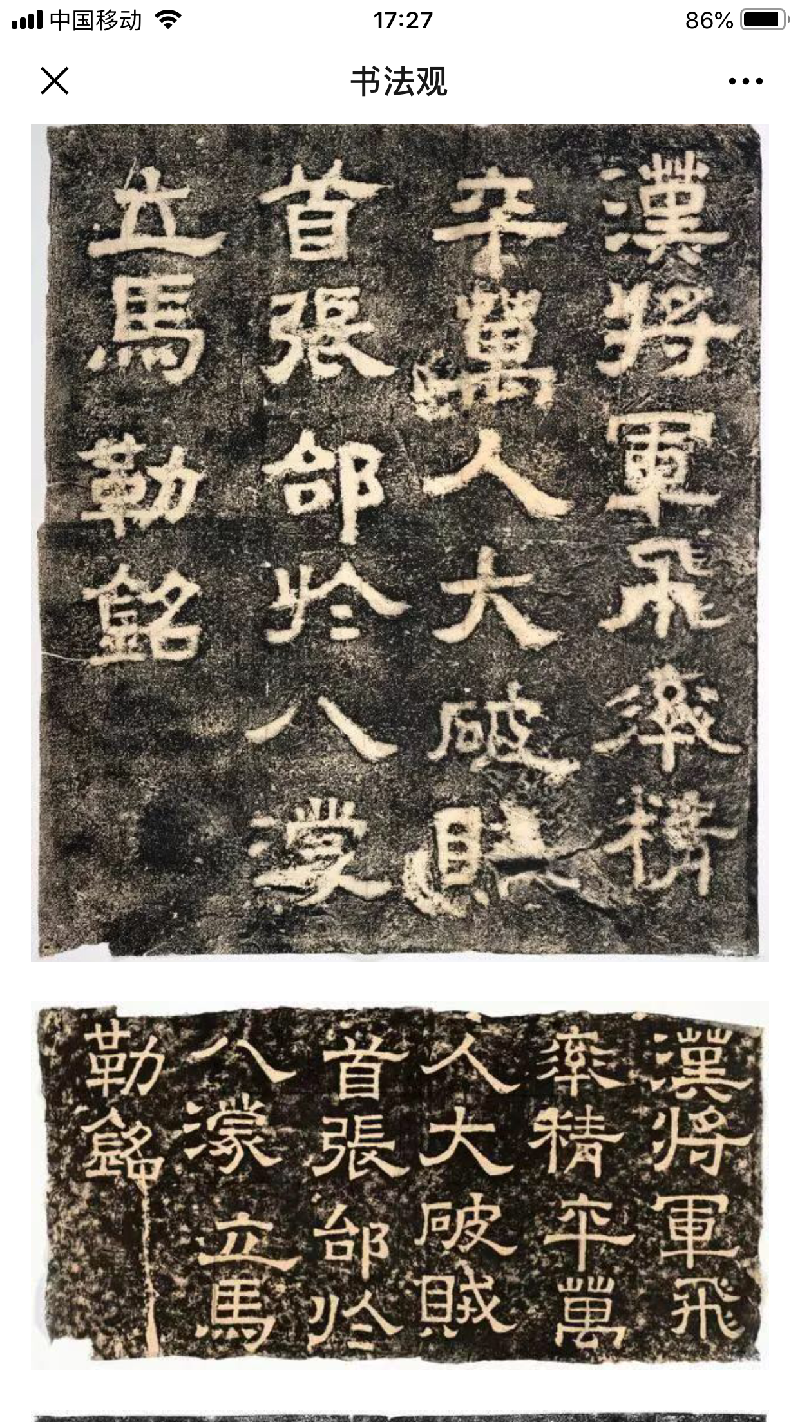 中国移动
17:27
86%
书法观
漢將軍飛率精
卒萬人大破賊
首張郃於八濛
立馬勒銘
漢将軍飛
率精卒萬
人大破賊
首張郃於
八濛立馬
勒銘